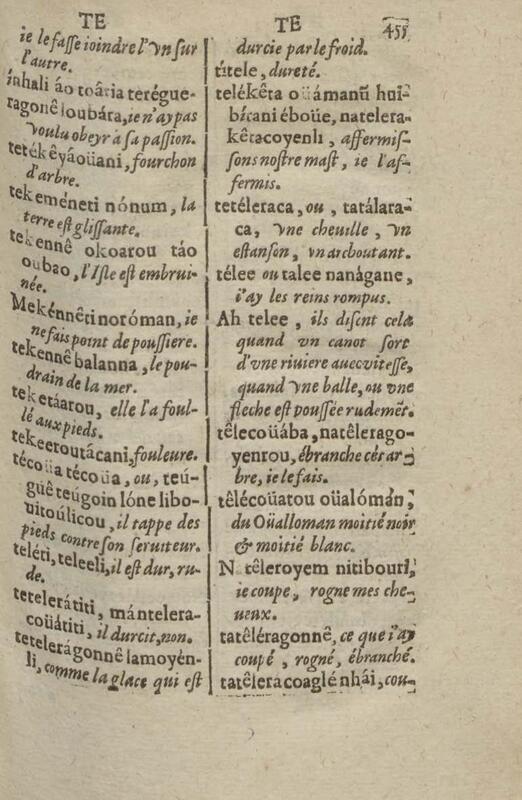 TE
ie le fasse ioindre l'vn sur
l'autre.
ínhali áo toária terégue-
ragonê loubára, ie n'ay pas
voulu obeyr à sa passion.
tetékêyáoüani, fourchon
d'arbre.
tekeméneti nónum, la
terre est glissante.
tekennê okoarou táo
oubao, l'Isle est embrui-
née.
Mekénnêti noróman, ie
ne fais point de poussiere.
tekennê balanna, le pou-
drain de la mer.
teketáarou, elle l'a foul-
lé aux pieds.
tekeeroutácani, fouleure.
técoüa técoüa, ou, teú-
guê teúgoin lóne libo-
uitoúlicou, il tappe des
pieds contre son seruiteur.
teléti, teleeli, il est dur, ru-
de.
tetelerátiti, mántelera-
coüátiti, il durcit, non.
teteleragonnê lamoyén-
li, comme la glace qui est
TE
455
durcie par le froid.
títele, dureté.
telékêta oüámanũ huí-
bícani éboüe, natelera-
kêtacoyenli, affermis-
sons nostre mast, ie l'af-
fermis.
tetéleraca, ou, tatálara-
ca, vne cheuille, vn
estanson, vn archoutant.
télee ou talee nanágane,
i'ay les reins rompus.
Ah telee, ils disent cela
quand vn canot sort
d'vne riuiere auec vitesse,
quand vne balle, ou vne
fleche est poussée rudemẽt.
têlecoüába, natêlerago-
yenrou, ébranche cét ar-
bre, ie le fais.
têlécoüatou oüalómán,
du Oüalloman moitié noir
& moitié blanc.
N têleroyem nitibouri,
ie coupe, rogne mes che-
ueux.
tatêléragonnê, ce que i'ay
coupé, rogné, ébranché.
tatêlera coaglé nhái, cou-